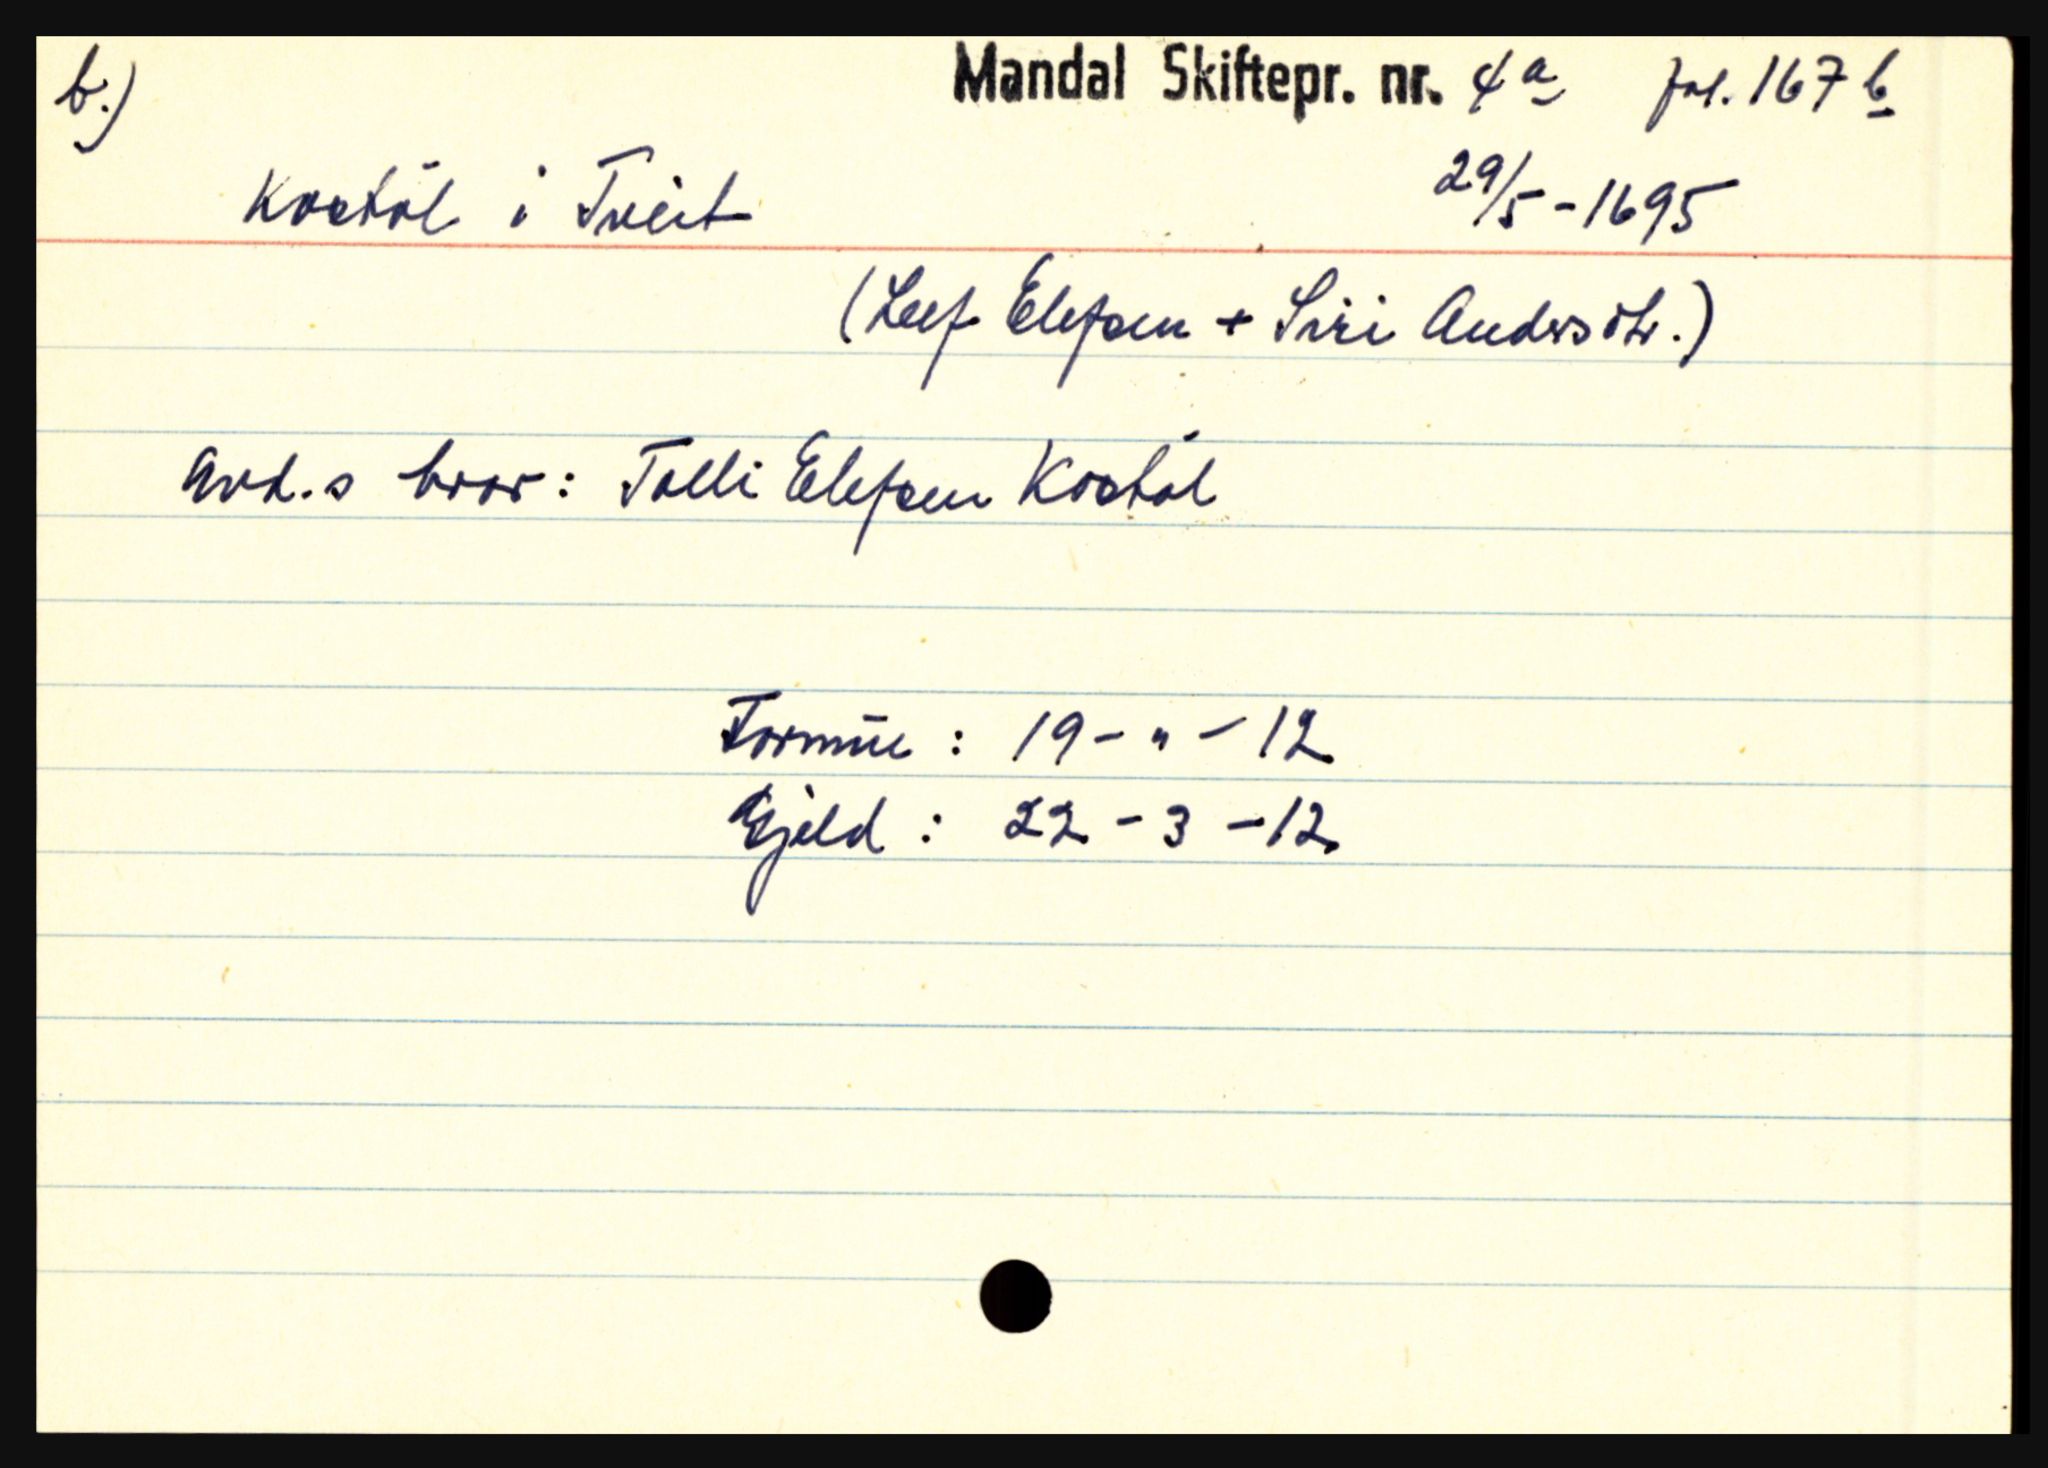 b.) Mandal Skiftepr. nr. 4a fol. 167 b
Kostöl i Tveit 29/5-1695
(Leef Elefsen + Siri Andersdtr.)
Avd.s bror: Tolli Elefsen Kostöl
Formue : 19 - " - 12
Gjeld : 22 - 3 - 12